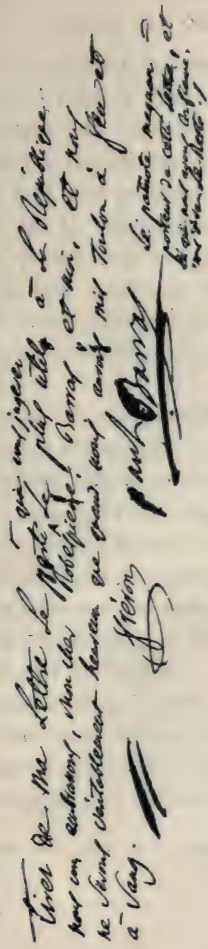 que vous jugerez
Tirer de ma Lettre le parti le plus utile à la République.
nous vous embrassons, mon cher Robespierre! Barras et moi, et nous
ne serons véritablement heureux que quand nous aurons mis Toulon à feu et
à sang.
Fréron
paul Barras
le patriote
porteur de cette lettre, et